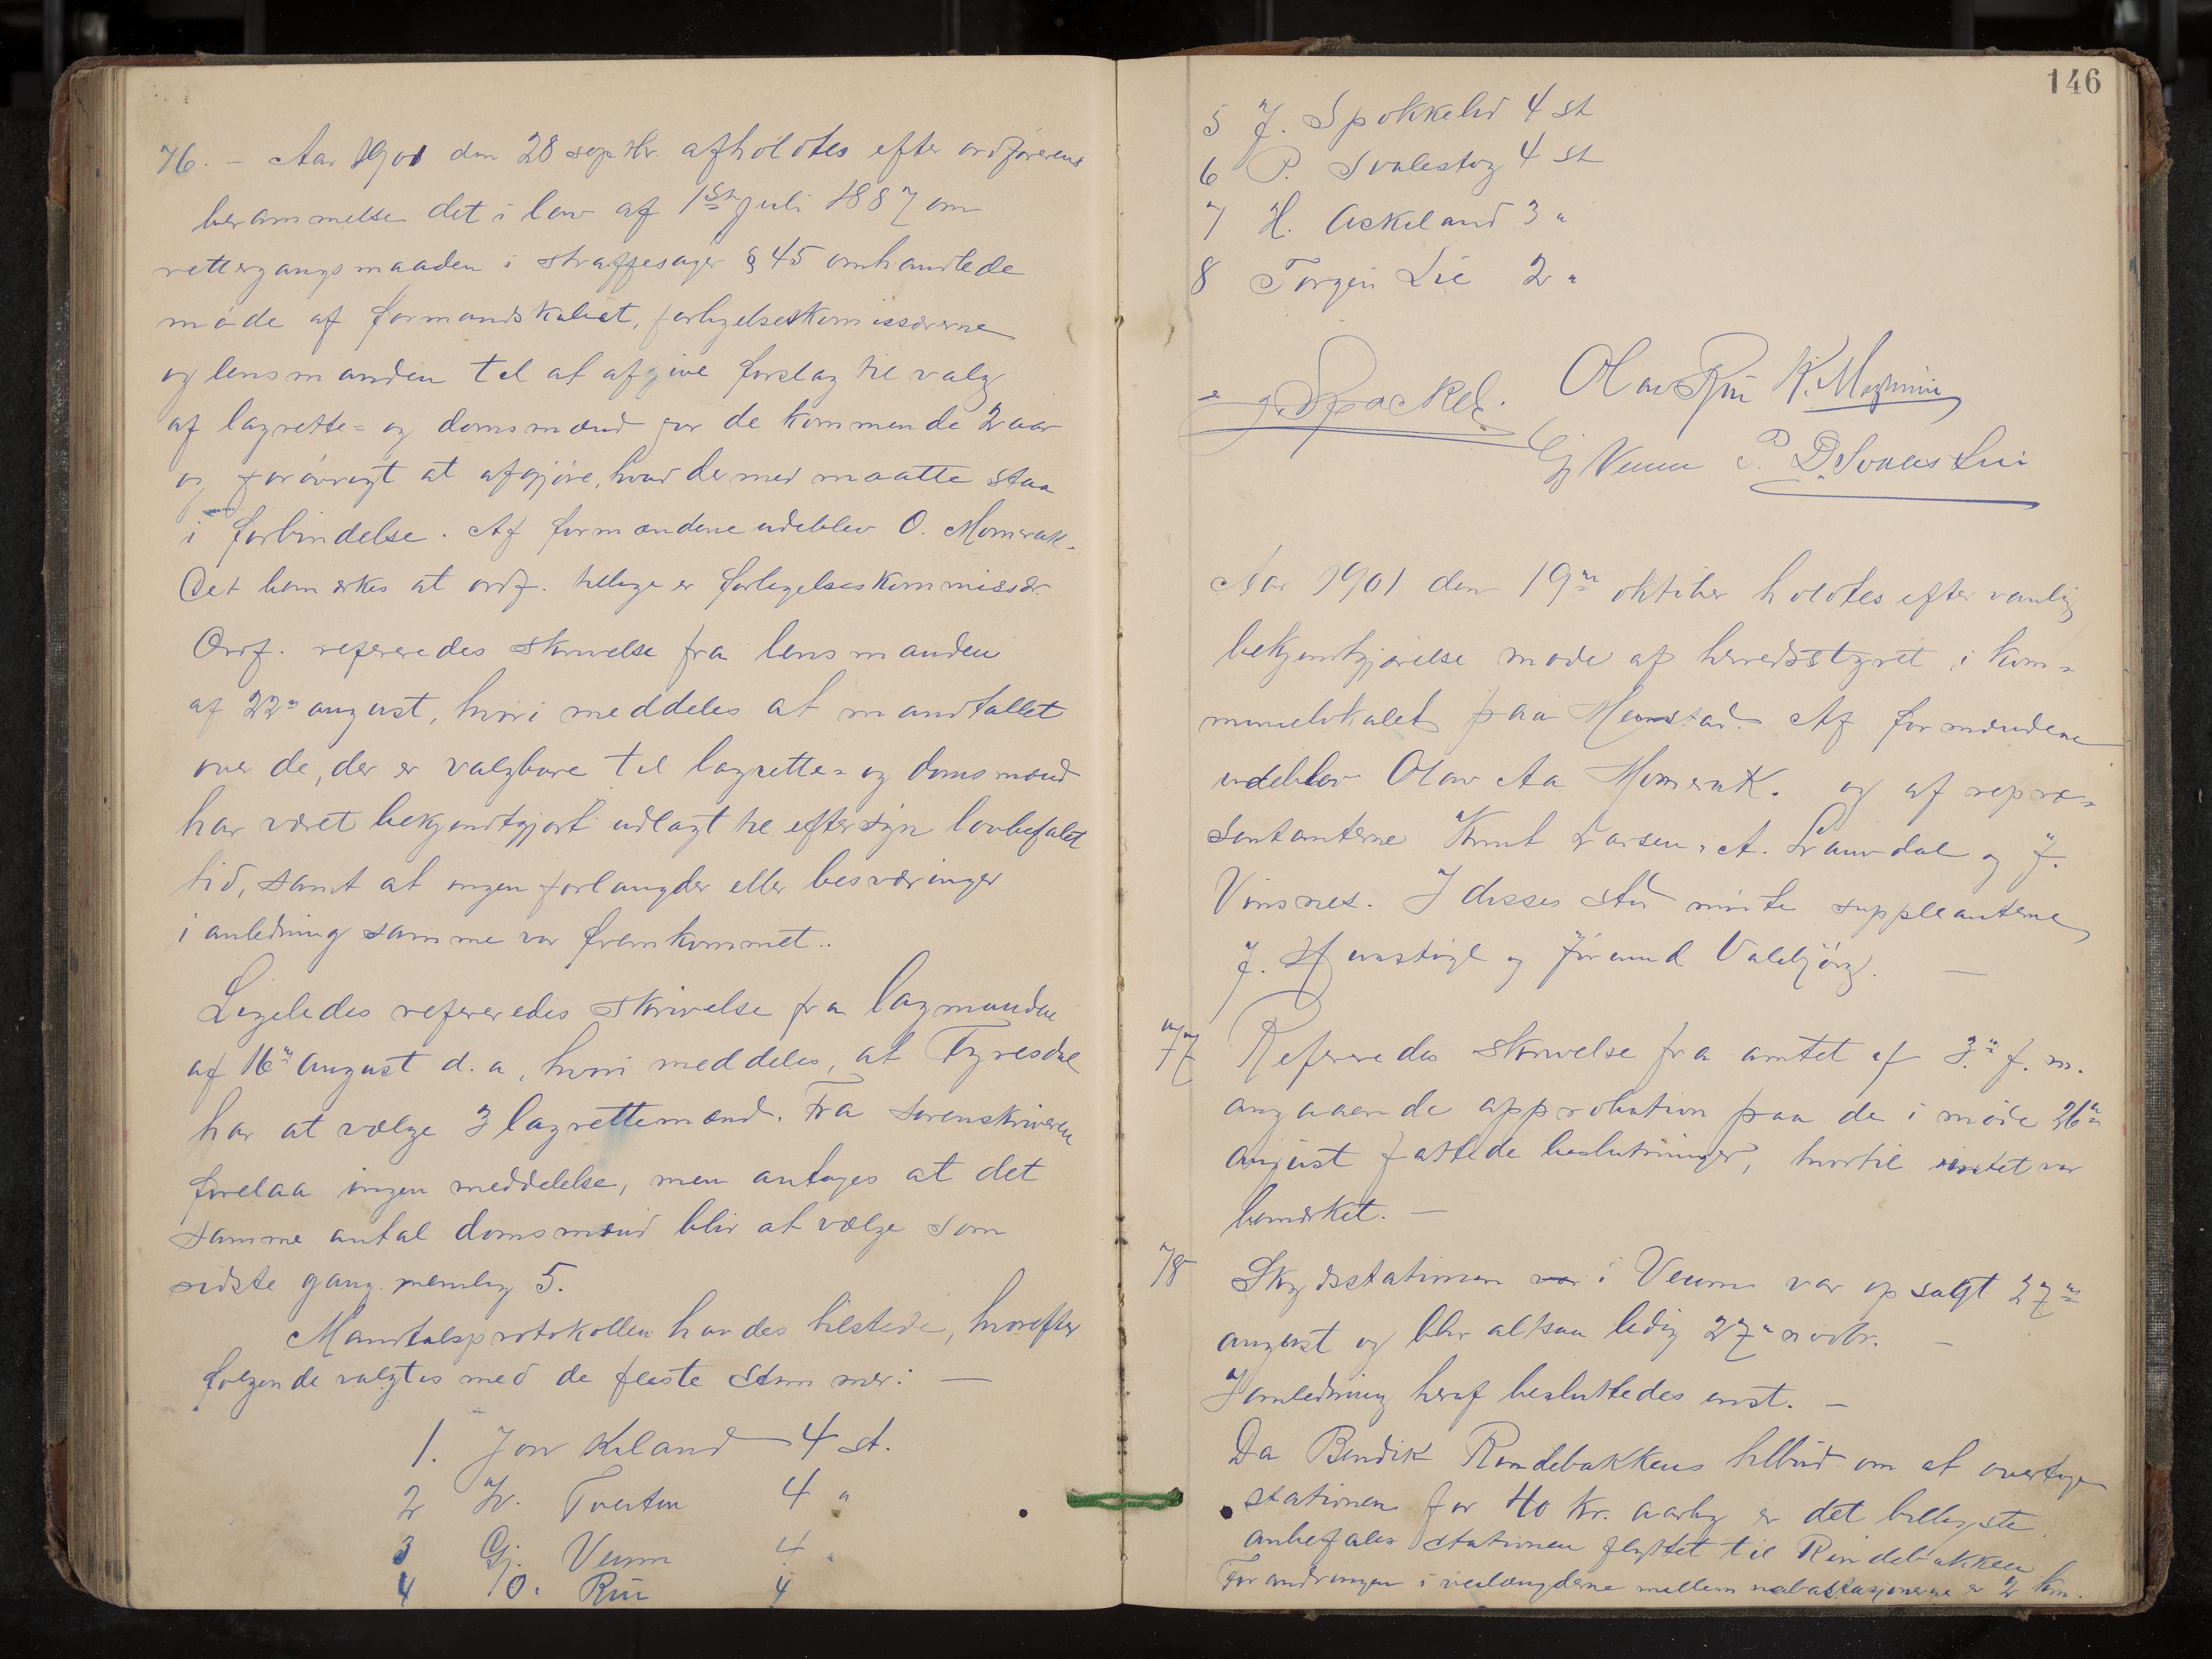 76. – Aar 1901 den 28 septbr. afholdtes efter ordførerens
berammelse det i lov af 1ste juli 1887 om
rettergangsmaaden i straffesager § 45 omhandlede
møde af formandskabet, forligelseskomissærerne
og lensmanden til at afgive forslag til valg
af lagrette= og domsmænd for de kommende 2 aar
og forøvrigt at afgjøre, hvad dermed maatte staa
i forbindelse. Af formændene udeblev O. Momrak.
Det bemærkes at ordf. tillige er forligelseskommissær.
Ordf. refereredes skrivelse fra lensmanden
af 22n august, hvori meddeles at mandtallet
over de, der er valgbare til lagrette= og domsmænd
har været bekjendtgjort udlagt til eftersyn lovbefalet
tid, samt at ingen forlangder eller besværinger
i anledning samme var fremkommet..
Ligeledes refereredes skrivelse fra lagmanden
af 16n august d. a, hvori meddeles, at Fyresdal
har at vælge 3 lagrettemænd. Fra sorenskriveren
forelaa ingen meddelelse, men antages at det
samme antal domsmænd blir at vælge som
sidste gang nemlig 5.
Mandtalsprotokollen havdes tilstede, hvorefter
følgende valgtes med de fleste stemmer: —
1. Jon Kiland 4 st.
2 Tveiten 4 "
3 Gj. Veum 4 "
4 O. Rui 4
146
5 J. Spokkeli 4 st
6 P. Svalestog 4 st
7 H. Askeland 3 "
8 Torgei Lie 2 "
Olav Rui
Gj Veum
Aar 1901 den 19n oktober holdtes efter vanlig
bekjendtgjørelse møde af herredsstyret i kom=
munelokalet paa Momstad. Af formændene
udeblev Olav Aa Momrak. og af repræ=
sentanterne Knut Larsen, A. Lauvdal og J.
Vinsnes. I disses sted møtte suppleanterne
J. og Jørund Valebjørg. —
77 Refereredes skrivelse fra amtet af 3n f. m.
angaaende approbation paa de i møde 26n
august fattede beslutninger, hvortil intet var
bemærket. —
78 Skydsstationen i Veum var opsagt 27n
august og blir altsaa ledig 27n novbr. —
I anledning heraf besluttedes enst. —
Da Bendik Rindebakkens tilbud om at overtage
stationen for 40 kr. aarlig er det billigste
anbefales stationen flyttet til Rindebakken
Forandringen i veilængderne mellem nabostasjonerne er 2 km.